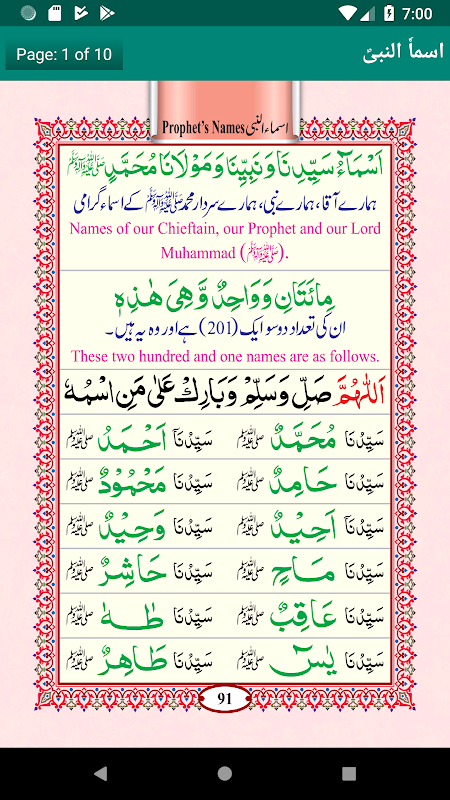 7:00
Page: 1 of 10
اسمأ النبیؐ
Prophet's Names اسماءالنبی
اَسْمَآءُ سَيِّدِنَا وَنَبِيِّنَا وَمَوْلَانَا مُحَمَّدٍ ﷺ
ہمارے آقا، ہمارے نبی، ہمارے سردار محمد ﷺ کے اسماء گرامی
Names of our Chieftain, our Prophet and our Lord
Muhammad (ﷺ).
مِائَتَانِ وَوَاحِدٌ وَّهِيَ هٰذِهٖ
ان کی تعداد دو سو ایک (201) ہے اور وہ یہ ہیں۔
These two hundred and one names are as follows.
اَللّٰهُمَّ صَلِّ وَسَلِّمْ وَبَارِكْ عَلٰى مَنِ اسْمُهٗ
سَيِّدُنَا مُحَمَّدٌ ﷺ سَيِّدُنَآ اَحْمَدُ ﷺ
سَيِّدُنَا حَامِدٌ ﷺ سَيِّدُنَا مَحْمُوْدٌ ﷺ
سَيِّدُنَآ اَحِيْدٌ ﷺ سَيِّدُنَا وَحِيْدٌ ﷺ
سَيِّدُنَا مَاحٍ ﷺ سَيِّدُنَا حَاشِرٌ ﷺ
سَيِّدُنَا عَاقِبٌ ﷺ سَيِّدُنَا طٰهٰ ﷺ
سَيِّدُنَا يٰسٓ ﷺ سَيِّدُنَا طَاهِرٌ ﷺ
91